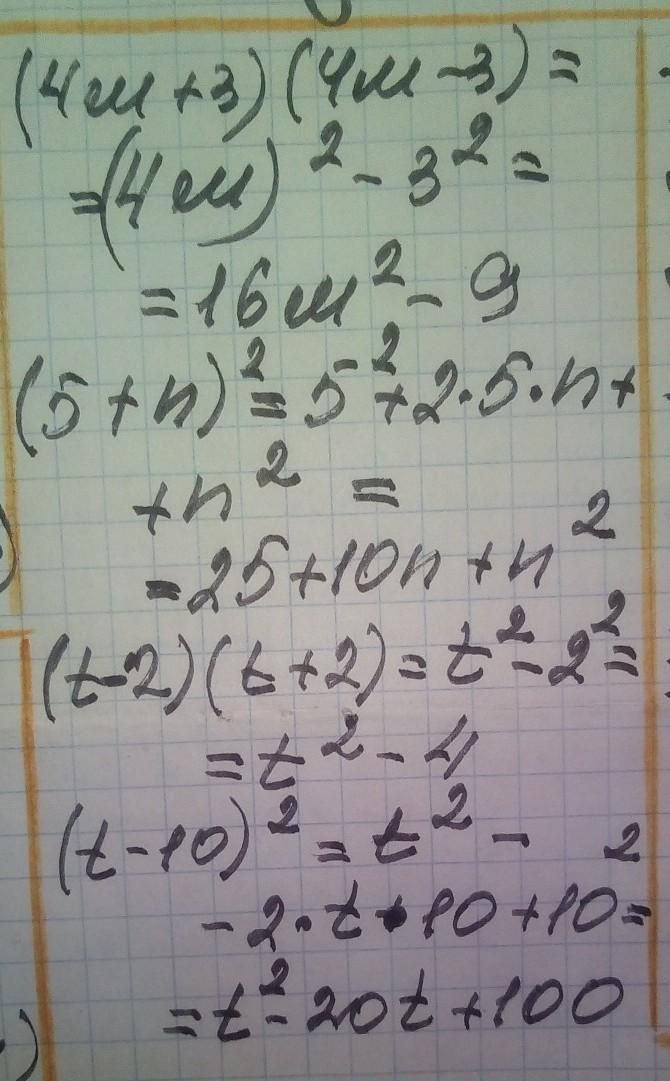 (4м+3)(4м-3)=
=(4м)²-3²=
=16м²-9
(5+n)²=5²+2·5·n+
+n²=
=25+10n+n²
(t-2)(t+2)=t²-2²=
=t²-4
(t-10)²=t²-
-2·t·10+10²=
=t²-20t+100